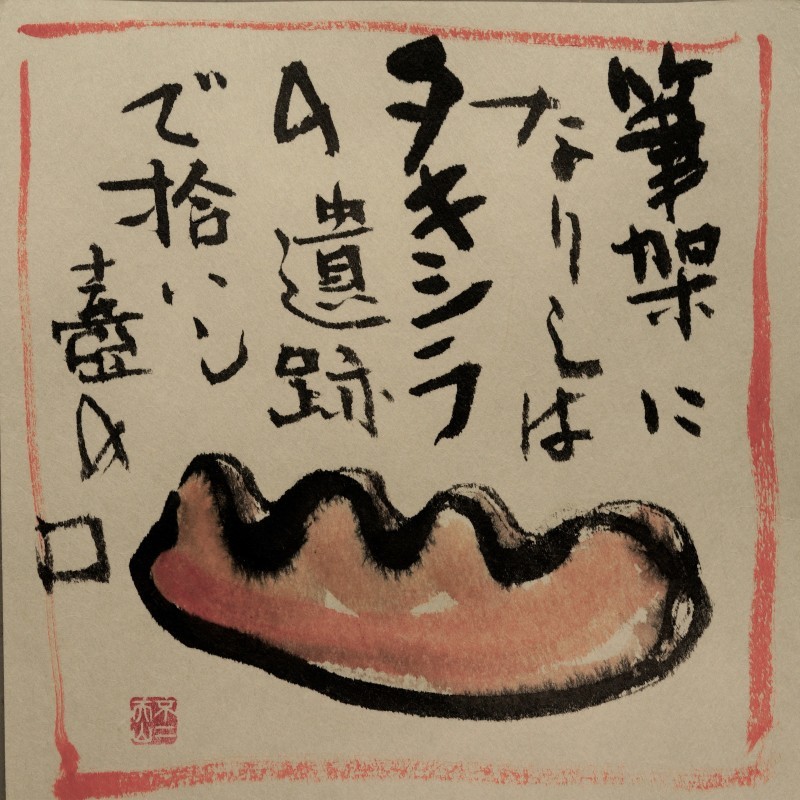 筆架に
なりしは
タキシラ
の遺跡
で拾いし
壺の
口